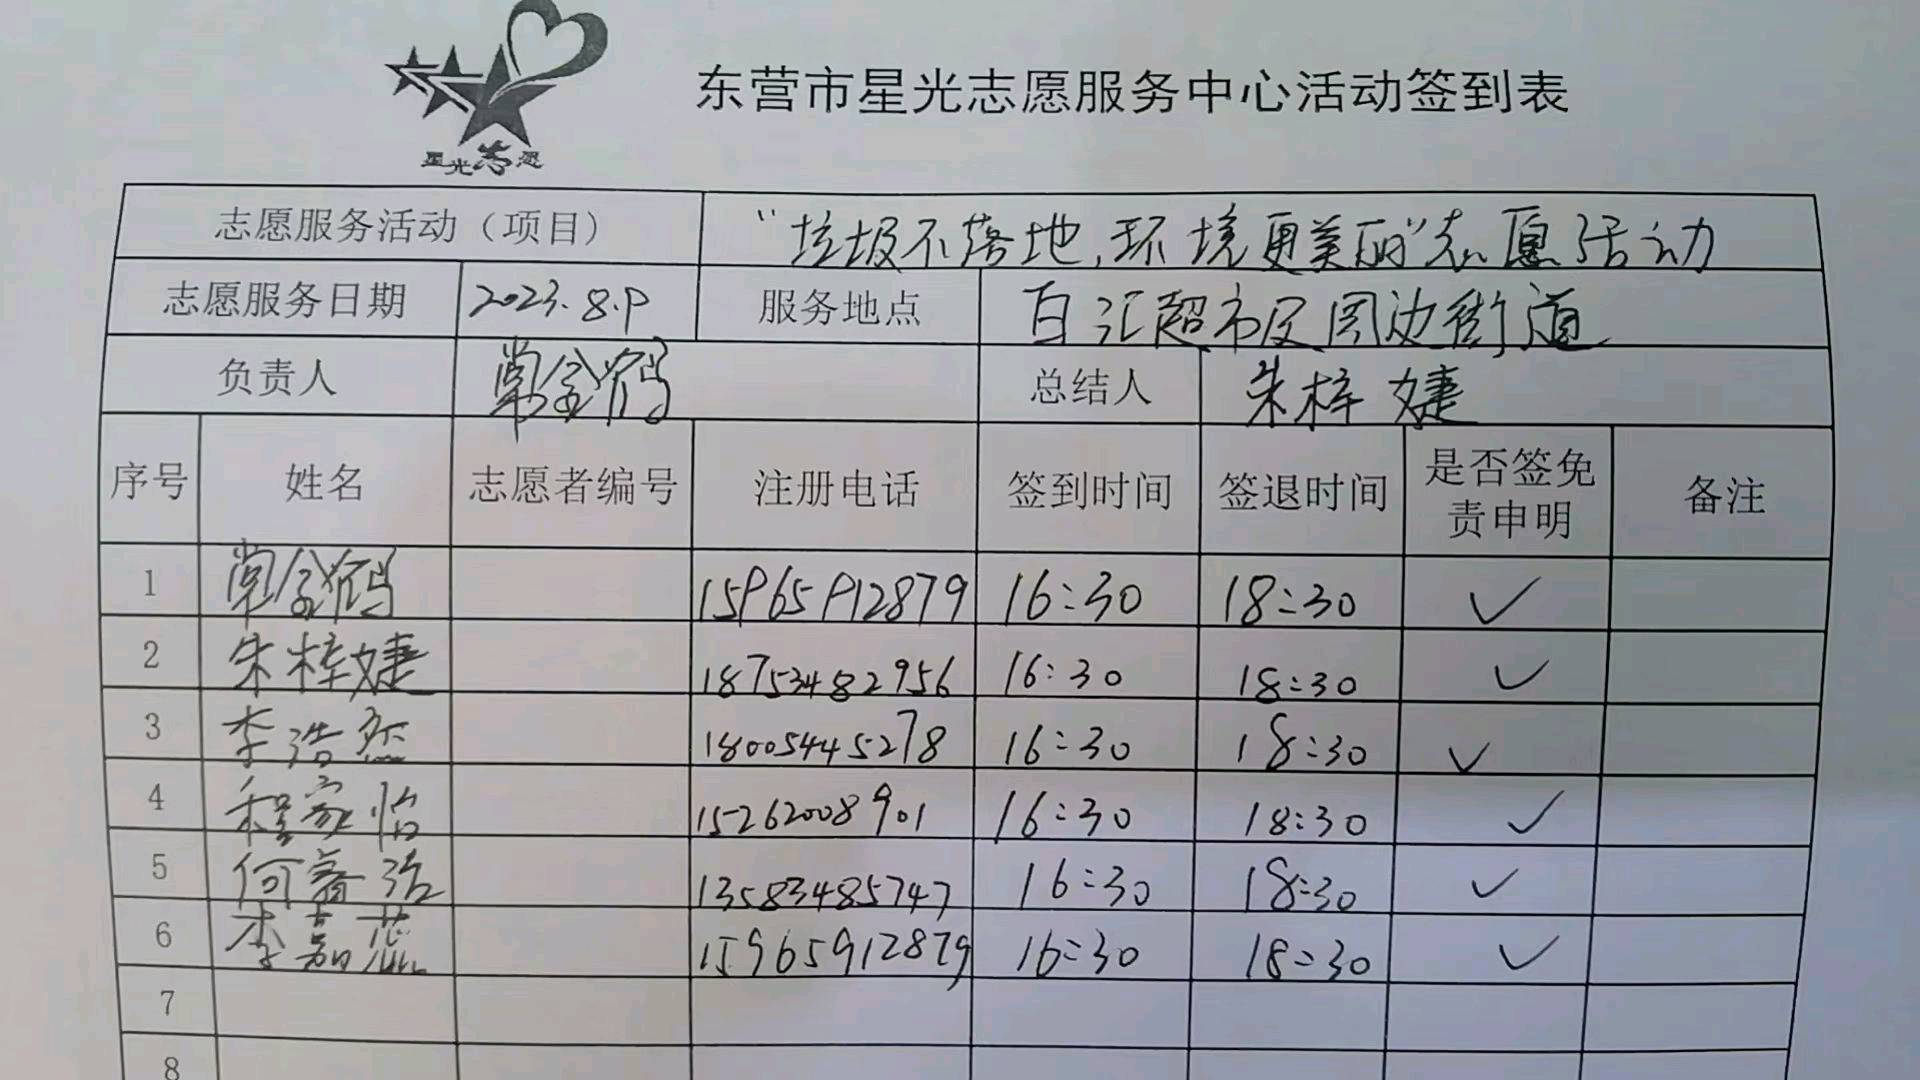 星光志愿
东营市星光志愿服务中心活动签到表
志愿服务活动（项目） “垃圾不落地,环境更美丽”志愿活动
志愿服务日期 2023.8.9 服务地点 百汇超市及周边街道
负责人 总结人 朱梓婕
序号 姓名 志愿者编号 注册电话 签到时间 签退时间 是否签免责申明 备注
1 15965912879 16:30 18:30 ✓
2 朱梓婕 18753482956 16:30 18:30 ✓
3 李浩然 18005445278 16:30 18:30 ✓
4 程家怡 15262008901 16:30 18:30 ✓
5 何睿浩 13583485747 16:30 18:30 ✓
6 李嘉蕊 15965912879 16:30 18:30 ✓
7
8